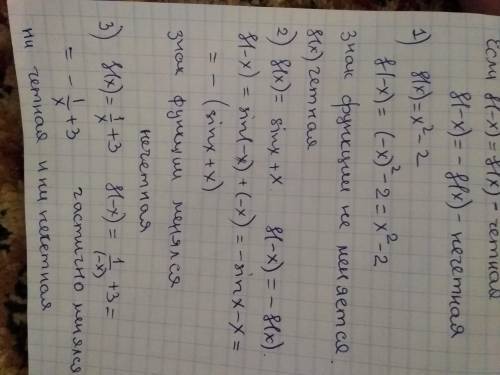 Если f(-x) = f(x) - четная
f(-x) = - f(x) - нечетная
1) f(x) = x² - 2
f(-x) = (-x)² - 2 = x² - 2
Знак функции не меняется.
f(x) четная
2) f(x) = sinx + x     f(-x) = - f(x).
f(-x) = sin(-x) + (-x) = - sinx - x =
= - (sinx + x)
знак функции менялся
нечетная
3) f(x) = 1/x + 3     f(-x) = 1/(-x) + 3 =
= - 1/x + 3     частично менялся
ни четная и ни нечетная